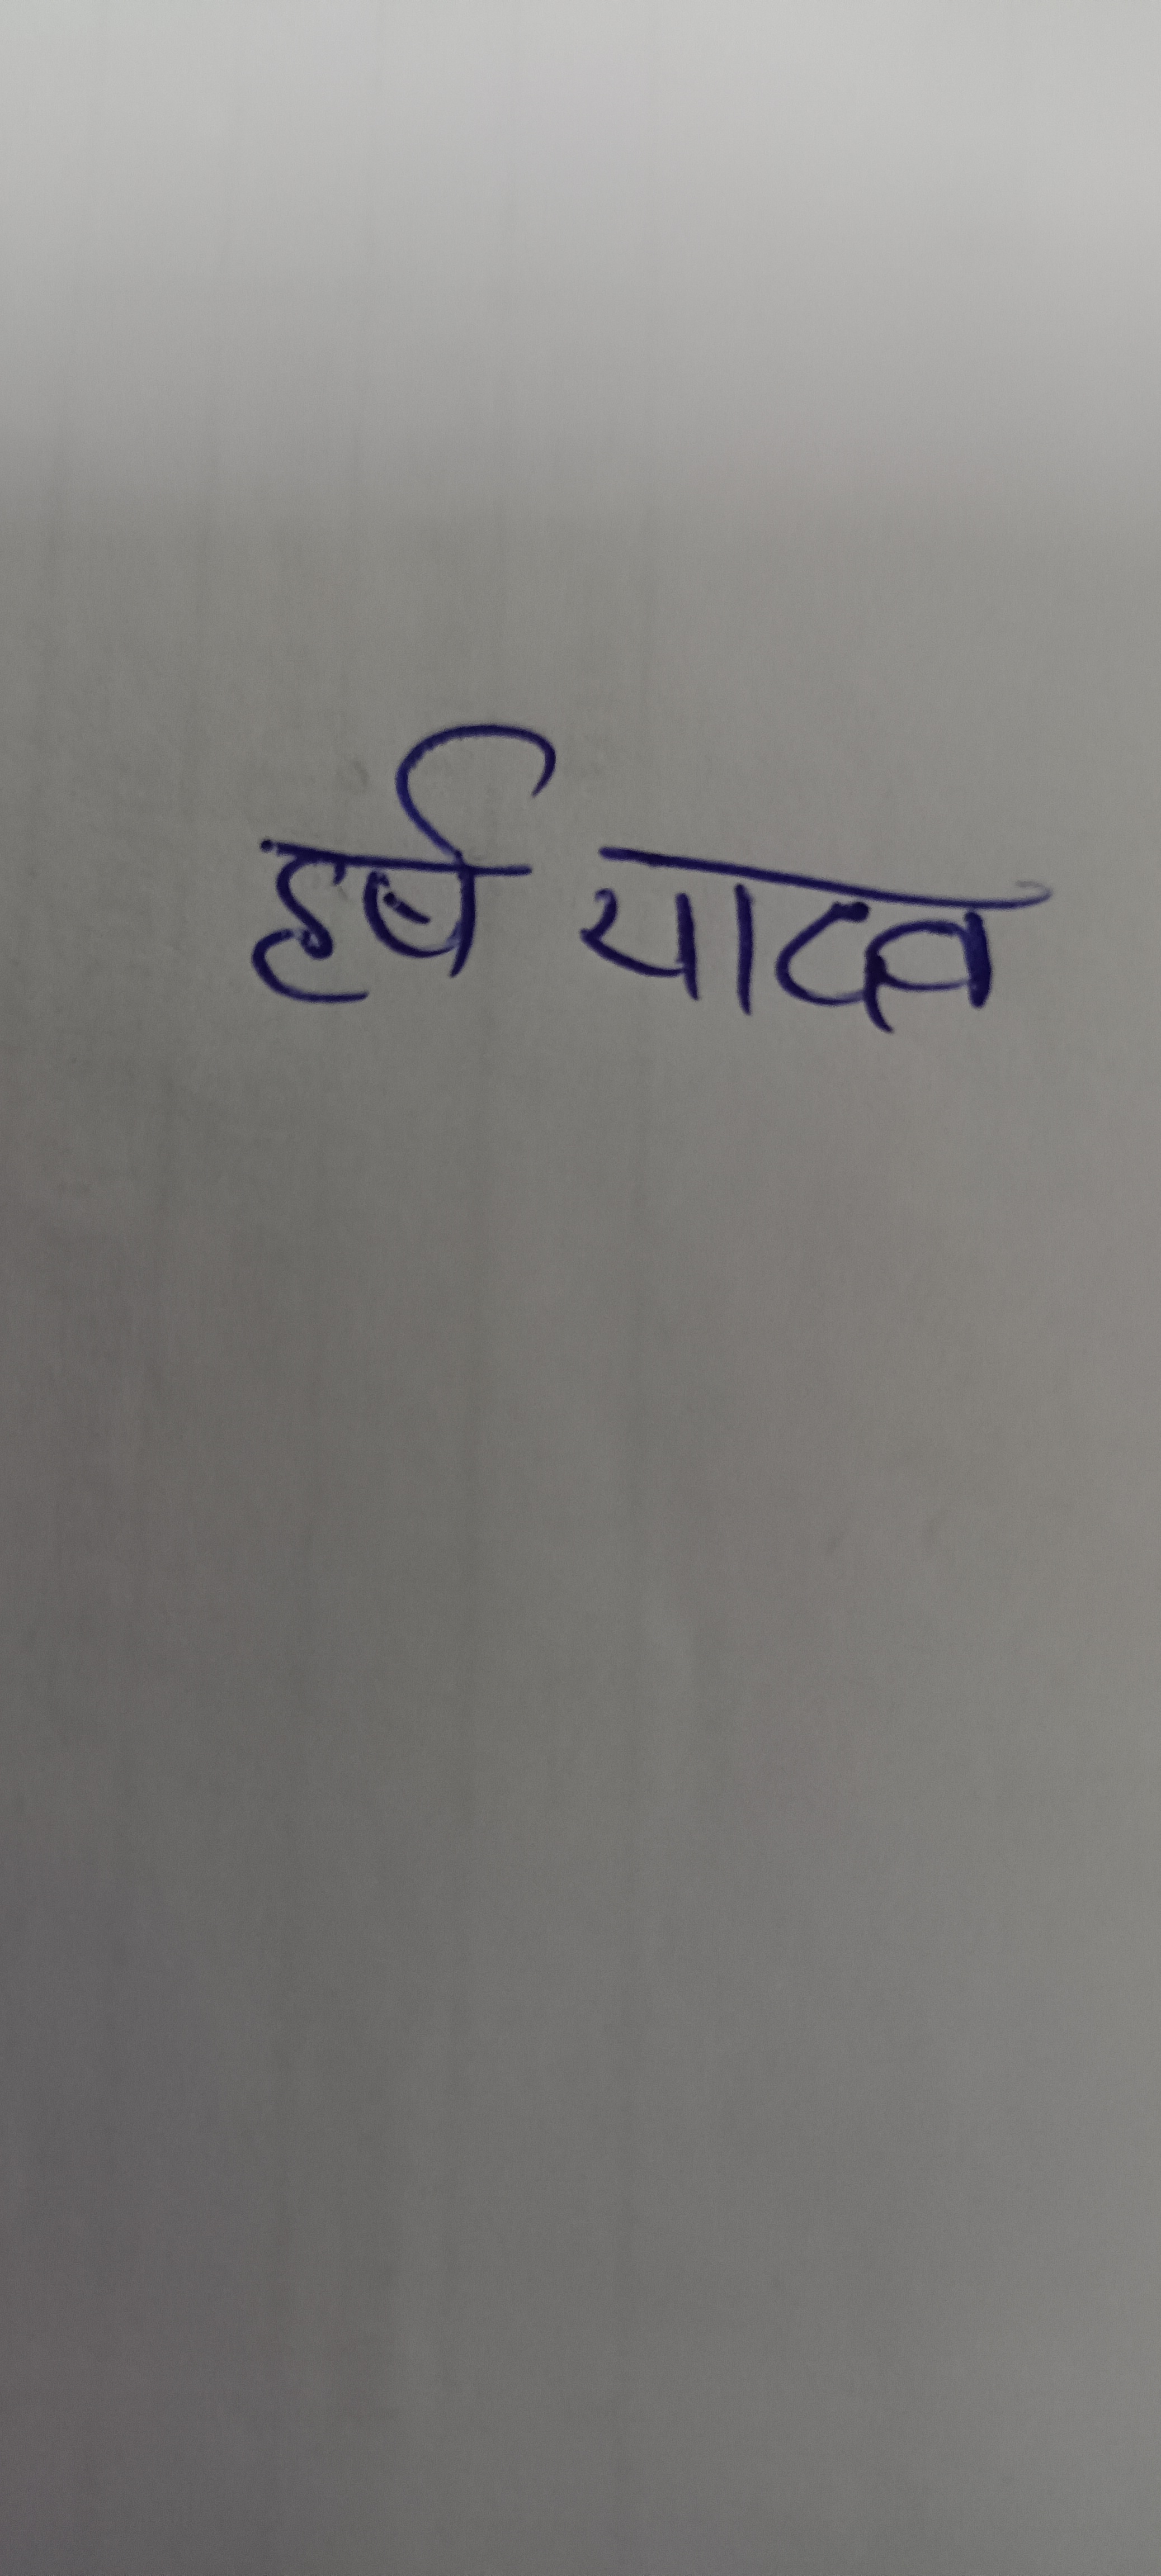 हर्ष यादव